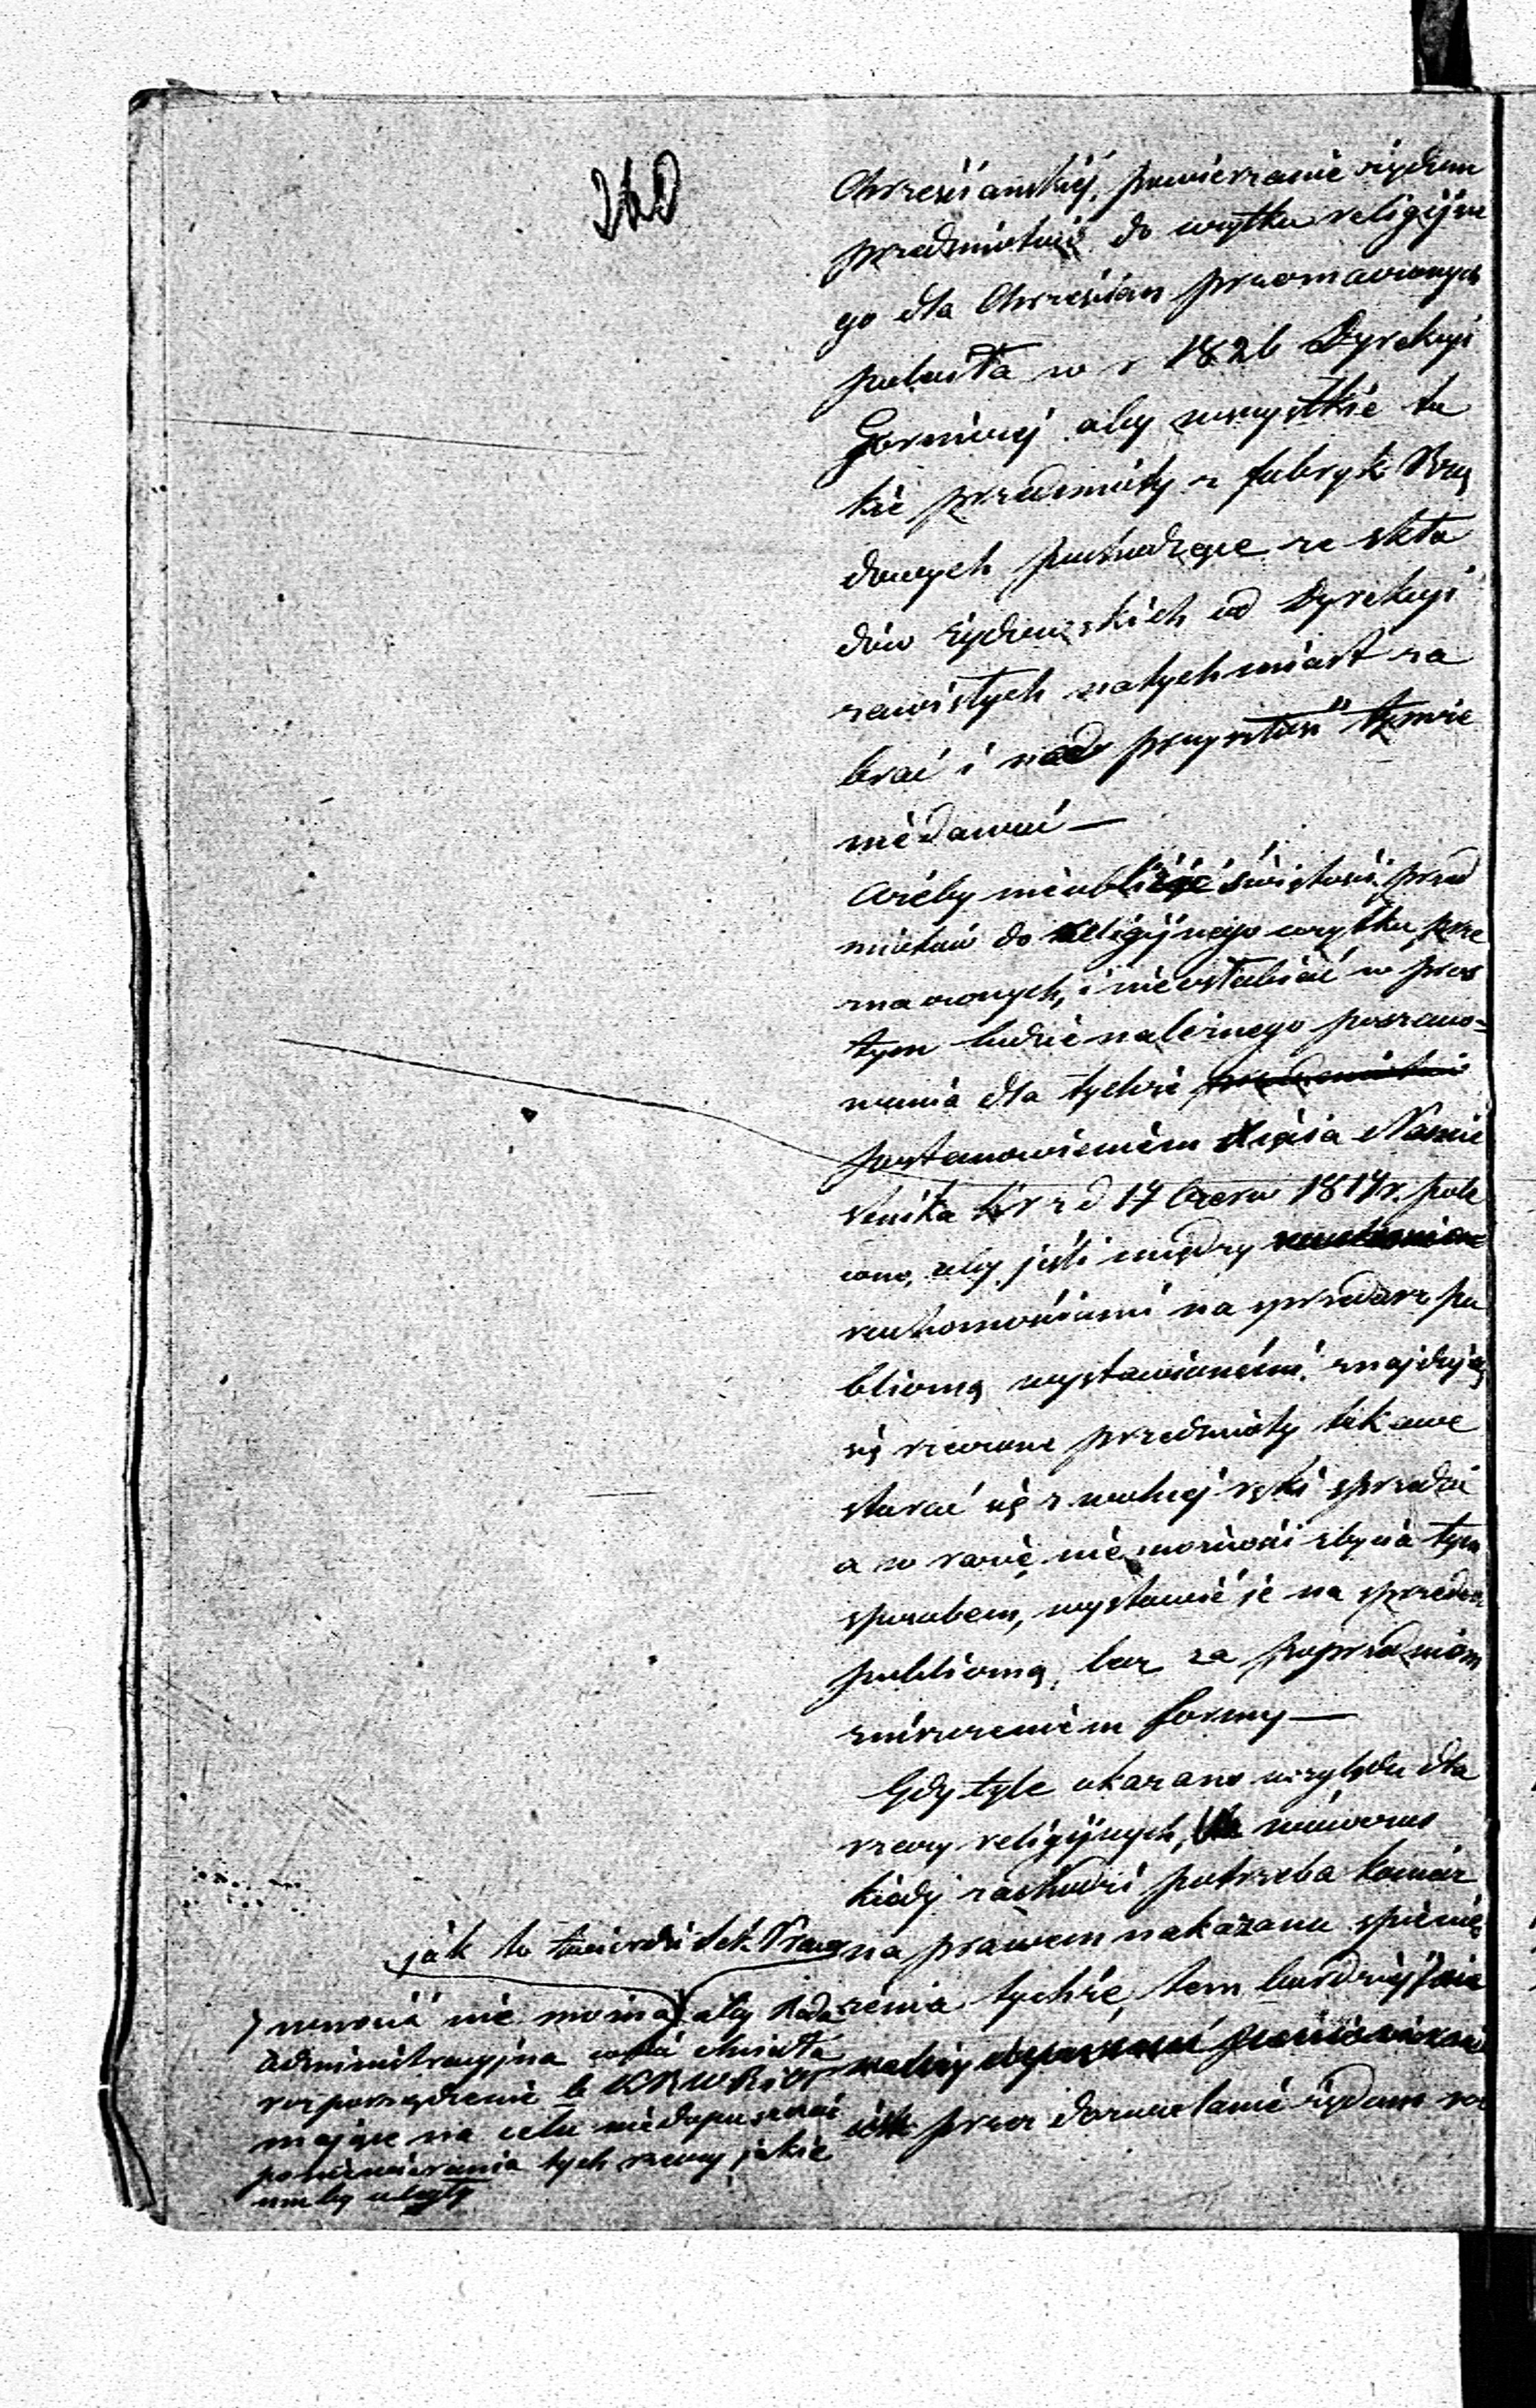 260
Chrześcianskiej, powierzanie żydom
przedmiotów do użytku religijne
go dla Chrześcian przeznaczonych
poleciła w r 1826 Dyrekcyi
Gorniczej aby wszystkie ta
kie przedmioty z fabryk Rzą
dowych pochodzące ze skła
dów żydowskich od Dyrekcyi
zawisłych natychmiast za
brać i nad przyszłość tymże
niedawać —
ażeby nieubliżyć świętości przed
miotów do religijnego użytku prze
znaczonych, i nieosłabiać w pros
tym ludzie należnego poszano=
wania dla tychże przedmiotów
postanowieniem Xięcia Namie
stnika z d 17 Czerw 1817 r. pole
cono, aby jeśli między
ruchomościami na sprzedarz pu
bliczną wystawionemi, znajdują
się rzeczone przedmioty takowe
starać się z wolnej ręki sprzedać
a w razie nie możności zbycia tym
sposobem, wystawić je na sprzedaż
publiczną, lecz za poprzedniem
zniszczeniem formy —
Gdy tyle okazano względu dla
rzeczy religijnych, nawówczas
kiedy zachodzi potrzeba koniecz
na prawem nakazana spienię
żenia tychże, tem bardziej
przez dozwolanie żydom
jak to twierdzi Sek. Praw
wnosić nie można aby Rada
Administracyjna chciała
rozporządzenie KRWRiOP
mające na celu niedopuszczać
poniewierania tych rzeczy, jakie